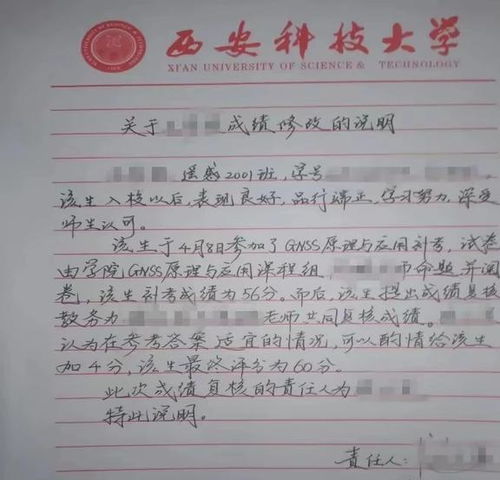 西安科技大学
XI'AN UNIVERSITY OF SCIENCE & TECHNOLOGY
关于 成绩修改的说明
遥感2001班，学号
该生入校以后，表现良好，品行端正，学习努力，深受
师生认可。
该生于4月8日参加了GNSS原理与应用补考，试卷
由学院GNSS原理与应用课程组， 命题并阅
卷，该生补考成绩为56分。而后，该生提出成绩复核
教务为 老师共同复核成绩。
认为在参考答案适宜的情况，可以酌情给该生
加4分，该生最终评分为60分。
此次成绩复核的责任人为
特此说明。
责任人：